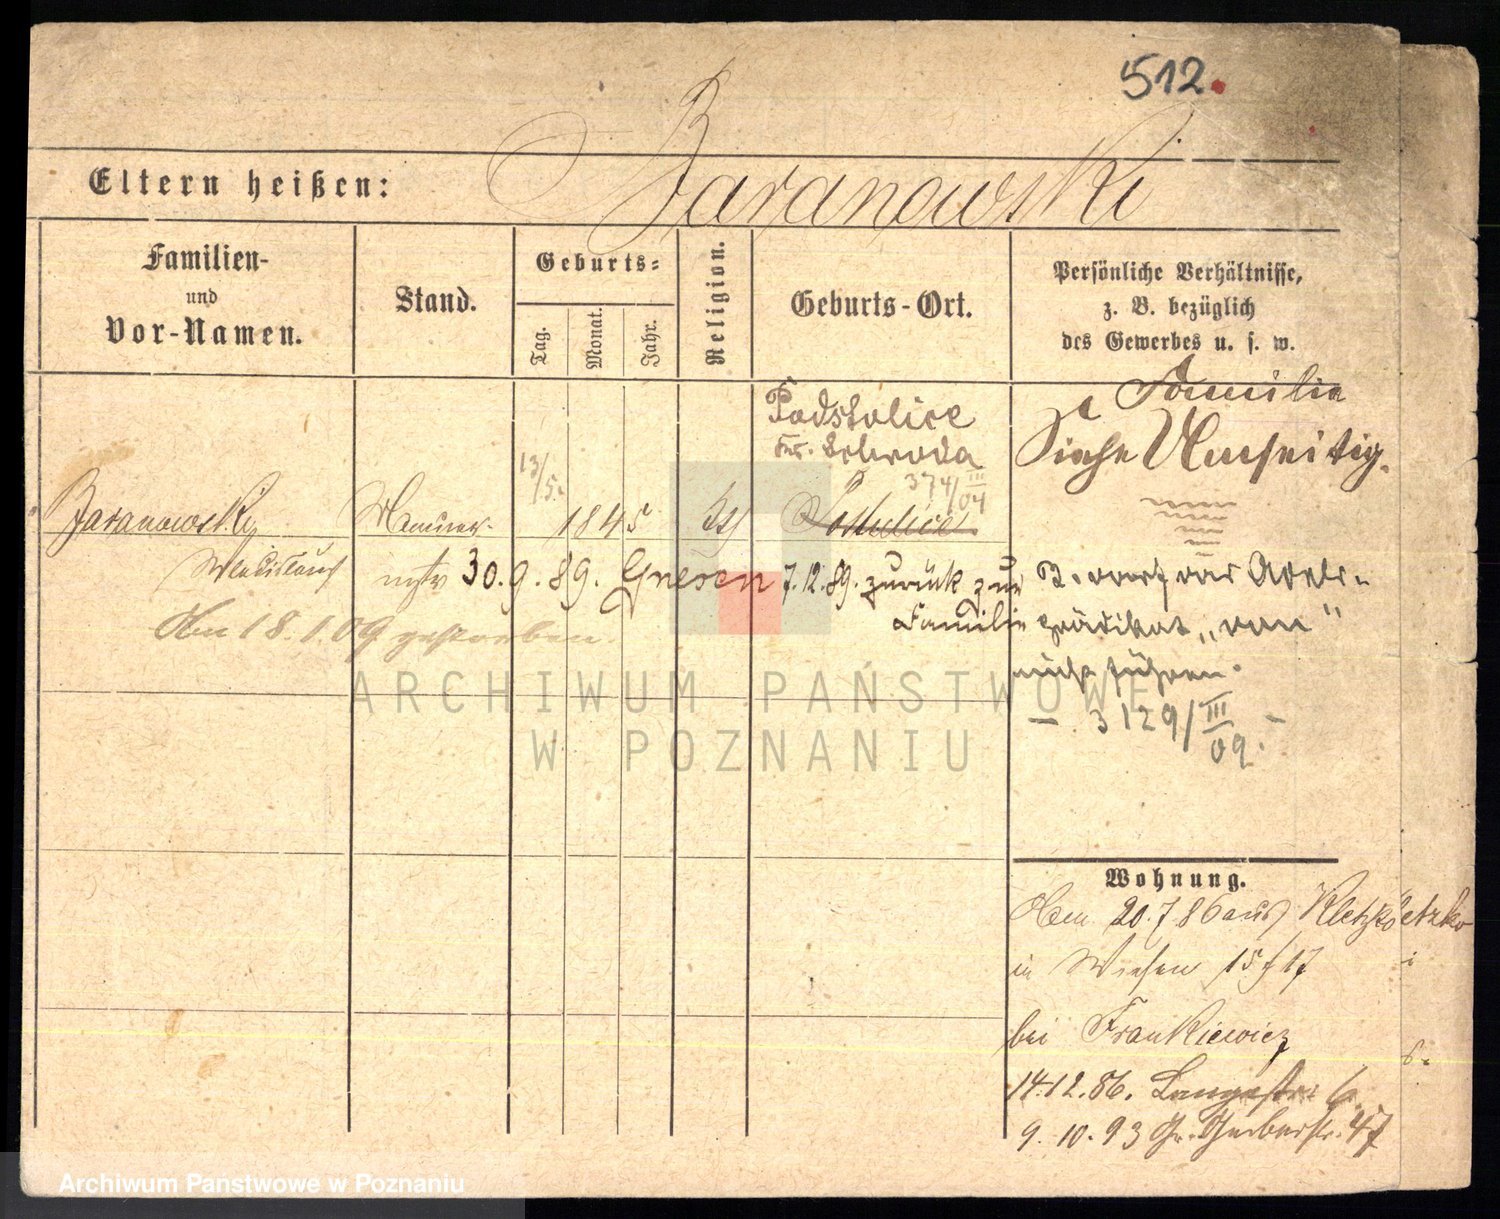 512.
Baranowski
Eltern heißen:
Familien-
und
Vor-Namen.
Stand.
Geburts-
Tag.
Monat.
Jahr.
Religion.
Geburts-Ort.
Persönliche Verhältnisse,
z. B. bezüglich
des Gewerbes u. s. w.
Familie
Siehe Umseitig.
Podstolice
Kr. Schroda
374/III 04
13/5.
Baranowski
Maurer
1845
Wladislaus
30.9.89. Gnesen 7.12.89. zurück zur
Familie
Am 18.1.09 gestorben.
B. darf das Adels-
prädikat „von“
nicht führen.
- 3129/III 09. -
Wohnung.
20.7.86 aus Kletzko
in Wiesen 15/17
bei Frankiewicz
14.12.86. Langestr. 6
9.10.93 Gr. Gerberstr. 47
ARCHIWUM PAŃSTWOWE
W POZNANIU
Archiwum Państwowe w Poznaniu